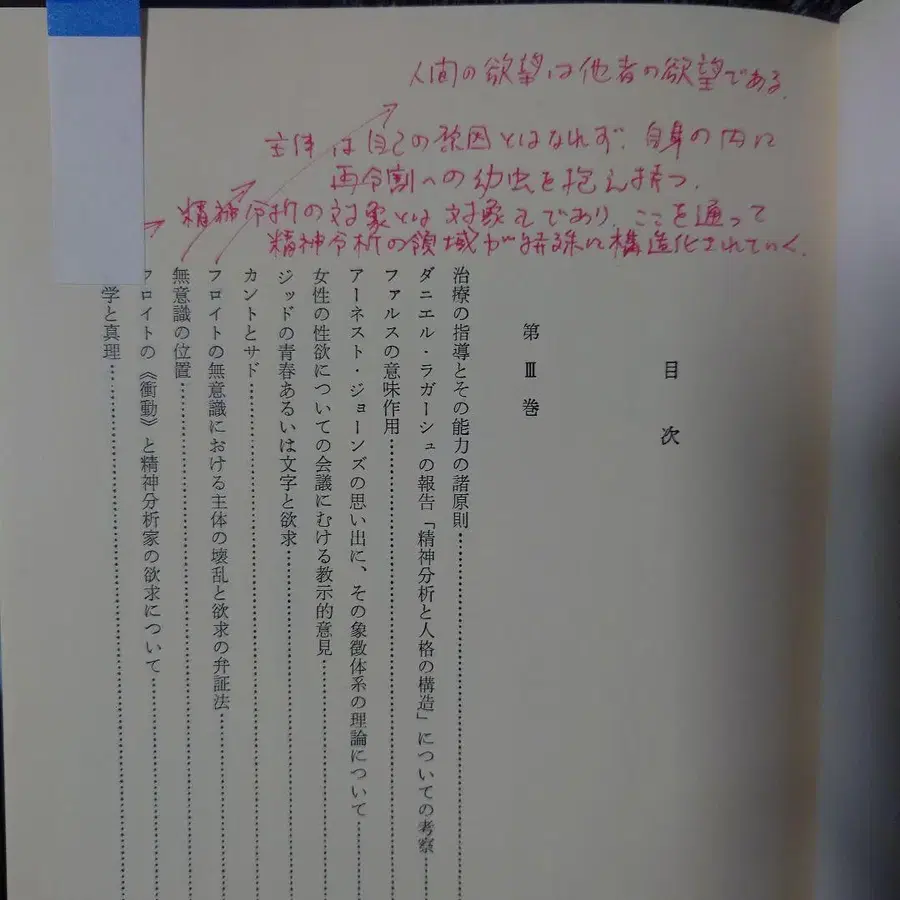 人間の欲望は他者の欲望である.
主体は自己の原因とはなれず.自身の内に
再分割への幼虫を抱え持つ.
精神分析の対象とは対象aであり.ここを通って
精神分析の領域が特殊に構造化されていく.
目次
第Ⅲ巻
治療の指導とその能力の諸原則
ダニエル・ラガーシュの報告「精神分析と人格の構造」についての考察
ファルスの意味作用
アーネスト・ジョーンズの思い出に、その象徴体系の理論について
女性の性欲についての会議にむける教示的意見
ジッドの青春あるいは文字と欲求
カントとサド
フロイトの無意識における主体の壊乱と欲求の弁証法
無意識の位置
フロイトの《衝動》と精神分析家の欲求について
学と真理